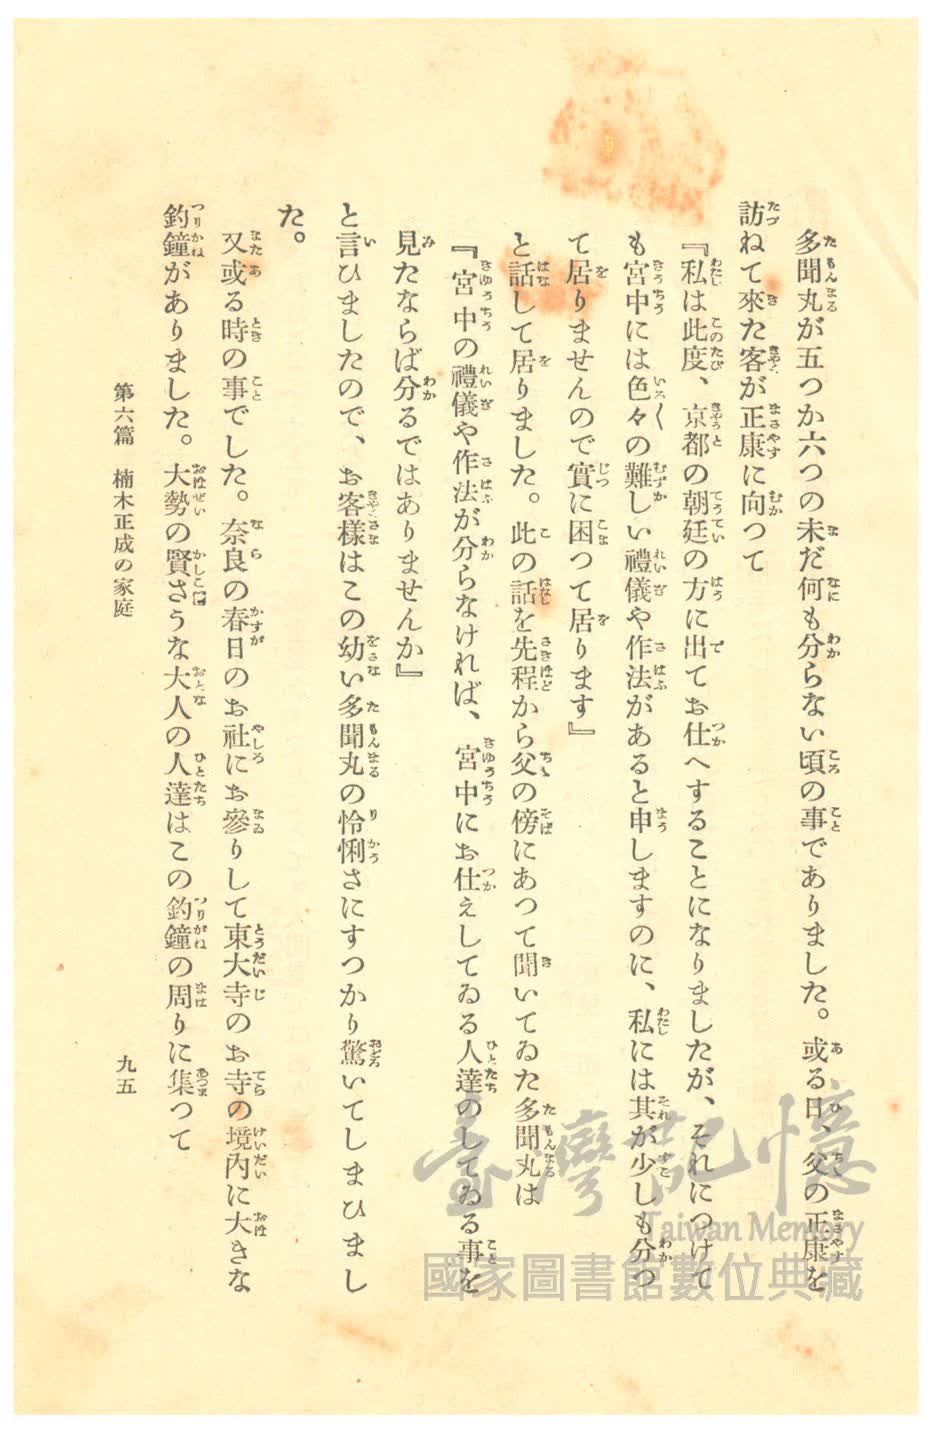 多聞丸が五つか六つの未だ何も分らない頃の事でありました。或る日、父の正康を
訪ねて來た客が正康に向つて
『私は此度、京都の朝廷の方に出てお仕へすることになりましたが、それにつけて
も宮中には色々〱の難しい禮儀や作法があると申しますのに、私には其が少しも分つ
て居りませんので實に困つて居ります』
と話して居りました。此の話を先程から父の傍にあつて聞いてゐた多聞丸は
『宮中の禮儀や作法が分らなければ、宮中にお仕えしてゐる人達のしてゐる事を
見たならば分るではありませんか』
と言ひましたので、お客樣はこの幼い多聞丸の怜悧さにすつかり驚いてしまひまし
た。
又或る時の事でした。奈良の春日のお社にお參りして東大寺のお寺の境內に大きな
釣鐘がありました。大勢の賢さうな大人の人達はこの釣鐘の周りに集つて
第六篇 楠木正成の家庭
九五
臺灣記憶
Taiwan Memory
國家圖書館數位典藏